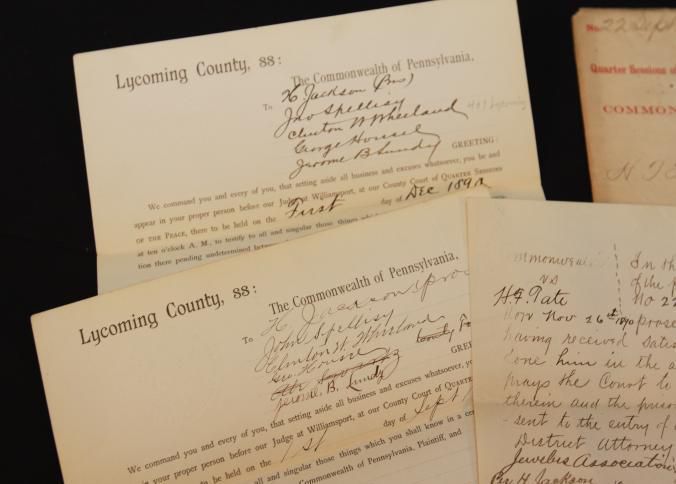 Lycoming County, SS:
The Commonwealth of Pennsylvania,
To H Jackson (Pros)
Jno Spellisy
Clinton W Wheeland
George Housel
Jerome B Lundy
GREETING:
We command you and every of you, that setting aside all business and excuses whatsoever, you be and
appear in your proper person before our Judge at Williamsport, at our County Court of QUARTER SESSIONS
OF THE PEACE, there to be held on the First day of Dec 1890
at ten o'clock A. M., to testify to all and singular those things
tion there pending undetermined
Lycoming County, SS:
The Commonwealth of Pennsylvania,
To H. Jackson (pros
John Spellisy
Clinton W. Wheeland
Geo Housel
Jerome B. Lundy
GREE
We command you and every of you, that setting aside all business and excuses whatsoever, you
in your proper person before our Judge at Williamsport, at our County Court of QUARTE
to be held on the 1st day of Sept
all and singular those things which you shall know in a cer
Commonwealth of Pennsylvania, Plaintiff, and
No. 22 Sept
Quarter Sessions of
COMMON
H F
ommonweal
vs
H. F. Tate
In th
of the
No 22
Now Nov 26th 1890 prose
having received Satis
done him in the a
prays the Court to
therein and the
sent to the entry of
District Attorney
Jewelers Association
Per H Jackson